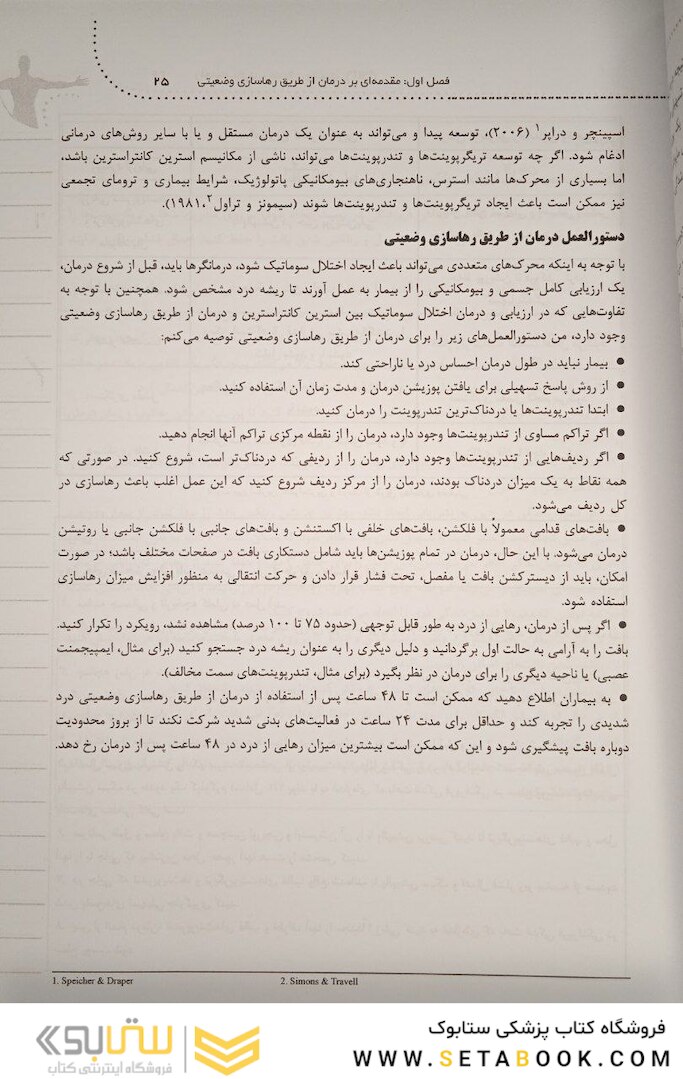 فصل اول: مقدمه‌ای بر درمان از طریق رهاسازی وضعیتی ۲۵
اسپینچر و دراپر۱ (۲۰۰۶)، توسعه پیدا و می‌تواند به عنوان یک درمان مستقل و یا با سایر روش‌های درمانی
ادغام شود. اگر چه توسعه تریگرپوینت‌ها و تندرپوینت‌ها می‌تواند، ناشی از مکانیسم استرین کانتراسترین باشد،
اما بسیاری از محرک‌ها مانند استرس، ناهنجاری‌های بیومکانیکی پاتولوژیک، شرایط بیماری و ترومای تجمعی
نیز ممکن است باعث ایجاد تریگرپوینت‌ها و تندرپوینت‌ها شوند (سیمونز و تراول۲، ۱۹۸۱).
دستورالعمل درمان از طریق رهاسازی وضعیتی
با توجه به اینکه محرک‌های متعددی می‌تواند باعث ایجاد اختلال سوماتیک شود، درمانگرها باید، قبل از شروع درمان،
یک ارزیابی کامل جسمی و بیومکانیکی را از بیمار به عمل آورند تا ریشه درد مشخص شود. همچنین با توجه به
تفاوت‌هایی که در ارزیابی و درمان اختلال سوماتیک بین استرین کانتراسترین و درمان از طریق رهاسازی وضعیتی
وجود دارد، من دستورالعمل‌های زیر را برای درمان از طریق رهاسازی وضعیتی توصیه می‌کنم:
● بیمار نباید در طول درمان احساس درد یا ناراحتی کند.
● از روش پاسخ تسهیلی برای یافتن پوزیشن درمان و مدت زمان آن استفاده کنید.
● ابتدا تندرپوینت‌ها یا دردناک‌ترین تندرپوینت را درمان کنید.
● اگر تراکم مساوی از تندرپوینت‌ها وجود دارد، درمان را از نقطه مرکزی تراکم آنها انجام دهید.
● اگر ردیف‌هایی از تندرپوینت‌ها وجود دارد، درمان را از ردیفی که دردناک‌تر است، شروع کنید. در صورتی که
همه نقاط به یک میزان دردناک بودند، درمان را از مرکز ردیف شروع کنید که این عمل اغلب باعث رهاسازی در
کل ردیف می‌شود.
● بافت‌های قدامی معمولاً با فلکشن، بافت‌های خلفی با اکستنشن و بافت‌های جانبی با فلکشن جانبی یا روتیشن
درمان می‌شود. با این حال، درمان در تمام پوزیشن‌ها باید شامل دستکاری بافت در صفحات مختلف باشد؛ در صورت
امکان، باید از دیسترکشن بافت یا مفصل، تحت فشار قرار دادن و حرکت انتقالی به منظور افزایش میزان رهاسازی
استفاده شود.
● اگر پس از درمان، رهایی از درد به طور قابل توجهی (حدود ۷۵ تا ۱۰۰ درصد) مشاهده نشد، رویکرد را تکرار کنید.
بافت را به آرامی به حالت اول برگردانید و دلیل دیگری را به عنوان ریشه درد جستجو کنید (برای مثال، ایمپیجمنت
عصبی) یا ناحیه دیگری را برای درمان در نظر بگیرد (برای مثال، تندرپوینت‌های سمت مخالف).
● به بیماران اطلاع دهید که ممکن است تا ۴۸ ساعت پس از استفاده از درمان از طریق رهاسازی وضعیتی درد
شدیدی را تجربه کند و حداقل برای مدت ۲۴ ساعت در فعالیت‌های بدنی شدید شرکت نکند تا از بروز محدودیت
دوباره بافت پیشگیری شود و این که ممکن است بیشترین میزان رهایی از درد در ۴۸ ساعت پس از درمان رخ دهد.
1. Speicher & Draper 2. Simons & Travell
فروشگاه کتاب پزشکی ستابوک
WWW.SETABOOK.COM
ستابوک
فروشگاه اینترنتی کتاب